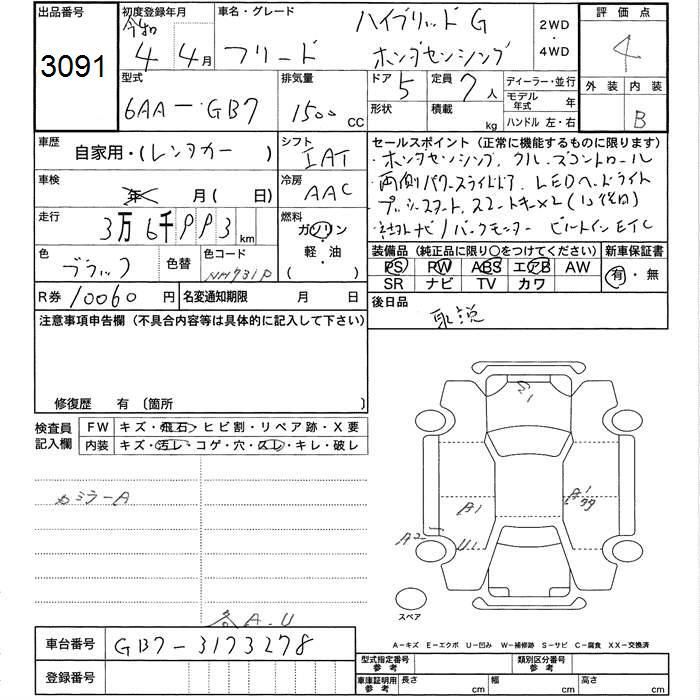 出品番号 3091
初度登録年月 令和 4年 4月
車名・グレード フリード ハイブリッド G ホンダセンシング
2WD・4WD
評価点 4
外装 内装 B
型式 6AA-GB7
排気量 1500 CC
ドア 5 形状
定員 7人 積載 kg
ディーラー・並行
モデル年式 年
ハンドル 左・右
車歴 自家用・(レンタカー )
シフト IAT
車検 年 月( 日)
冷房 AAC
走行 3万6千993km
燃料 ガソリン・軽油 ( )
色 ブラック 色替
色コード NH731P
R券 10060円 名変通知期限 月 日
セールスポイント(正常に機能するものに限ります)
・ホンダセンシング、クルーズコントロール
・両側パワースライドドア、LEDヘッドライト
プッシュスタート、スマートキー×2(1ヶ後日)
・社外ナビ/バックモニター ビルトインETC
装備品(純正品に限り〇をつけてください) 新車保証書
PS PW ABS エアB AW
SR ナビ TV カワ
有・無
後日品
取説
注意事項申告欄(不具合内容等は具体的に記入して下さい)
修復歴 有〔箇所 〕
検査員記入欄
FW キズ・飛石・ヒビ割・リペア跡・X要
内装 キズ・汚レ・コゲ・穴・スレ・キレ・破レ
カミラーA
各A・U
S1
A1
A1
A2
U1
スペア
A-キズ E-エクボ U-凹み W-補修跡 S-サビ C-腐食 XX-交換済
車台番号 GB7-3173278
登録番号
型式指定番号 参考 類別区分番号 参考
車庫証明用 参考 長さ cm 幅 cm 高さ cm